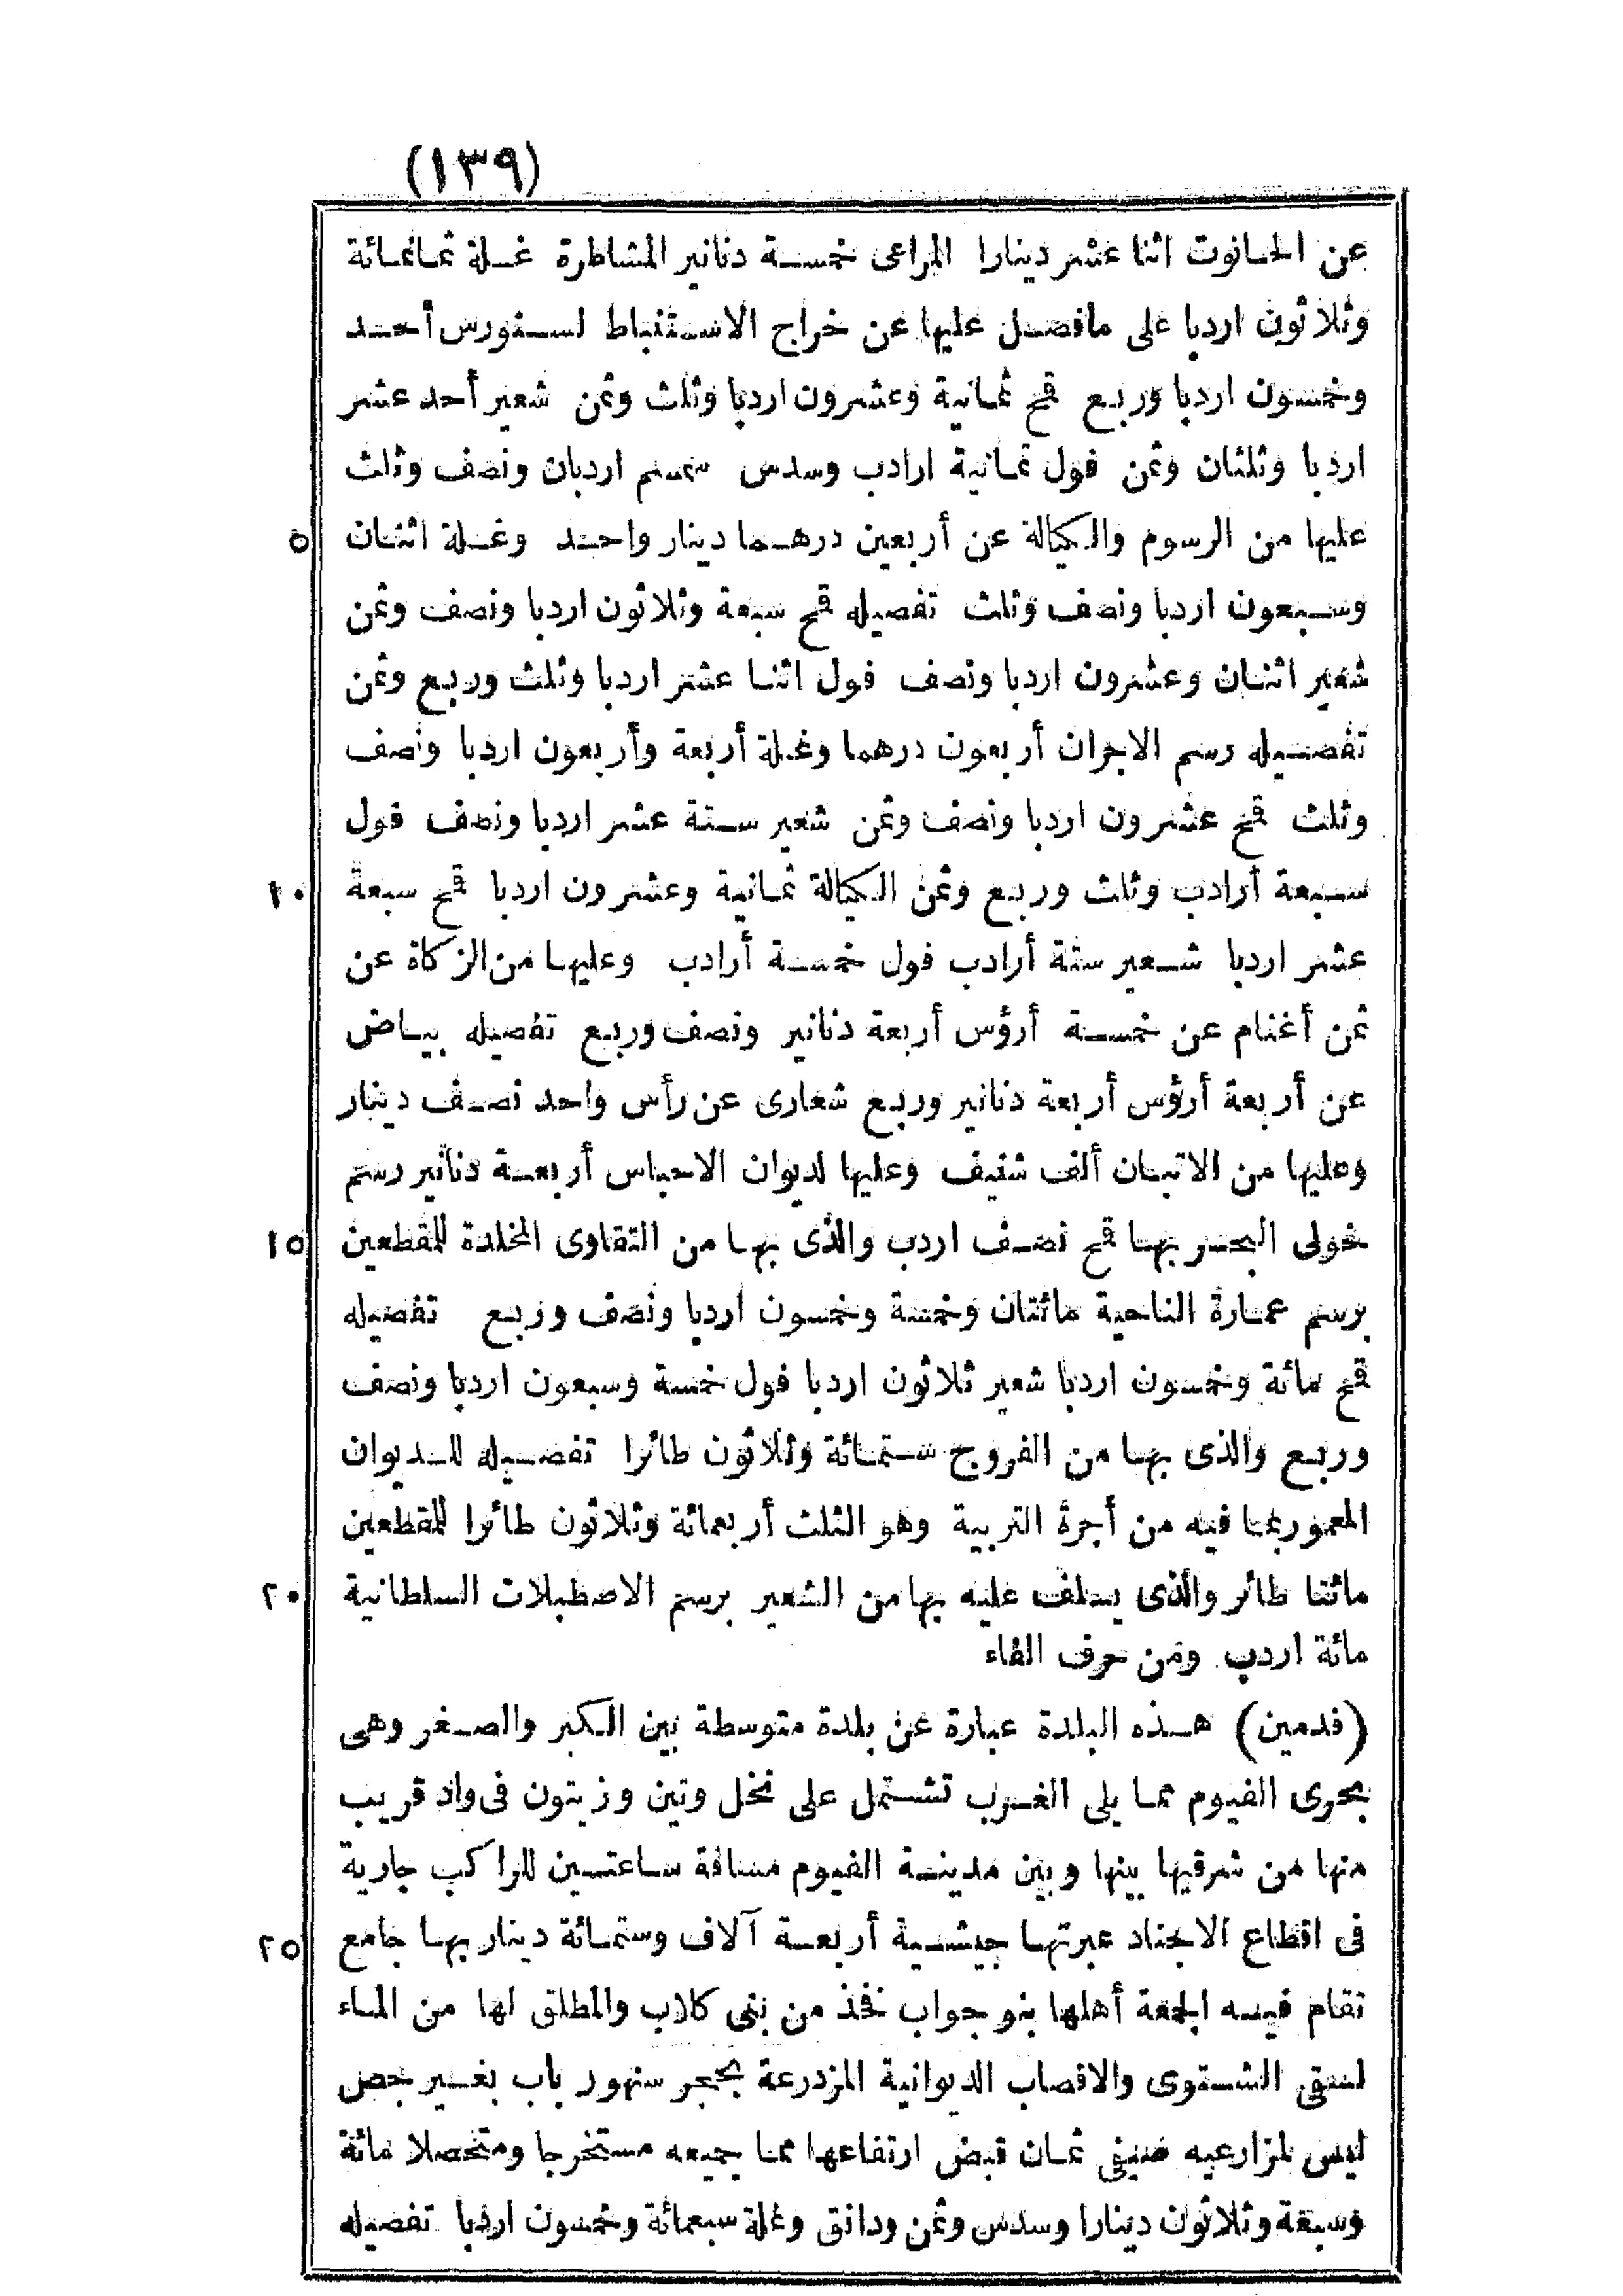 (١٣٩)
عن الحانوت اثنا عشر دينارا المراعى خمسة دنانير المشاطرة غلة ثمانمائة
وثلاثون اردبا على مافضل عليها عن خراج الاستنباط لسنورس أحد
وخمسون اردبا وربع قمح ثمانية وعشرون اردبا وثلث وثمن شعير أحد عشر
اردبا وثلثان وثمن فول ثمانية ارادب وسدس سمسم اردبان ونصف وثلث
عليها من الرسوم والكيالة عن أربعين درهما دينار واحد وغلة اثنان ٥
وسبعون اردبا ونصف وثلث تفصيله قمح سبعة وثلاثون اردبا ونصف وثمن
شعير اثنان وعشرون اردبا ونصف فول اثنا عشر اردبا وثلث وربع وثمن
تفصيله رسم الاجران أربعون درهما وغلة أربعة وأربعون اردبا ونصف
وثلث قمح عشرون اردبا ونصف وثمن شعير ستة عشر اردبا ونصف فول
سبعة أرادب وثلث وربع وثمن الكيالة ثمانية وعشرون اردبا قمح سبعة ١٠
عشر اردبا شعير ستة أرادب فول خمسة أرادب وعليها من الزكاة عن
ثمن أغنام عن خمسة أرؤس أربعة دنانير ونصف وربع تفصيله بياض
عن أربعة أرؤس أربعة دنانير وربع شعارى عن رأس واحد نصف دينار
وعليها من الاتبان ألف شنيف وعليها لديوان الاحباس أربعة دنانير رسم
خولى البحر بها قمح نصف اردب والذى بها من التقاوى المخلدة للمقطعين ١٥
برسم عمارة الناحية مائتان وخمسة وخمسون اردبا ونصف وربع تفصيله
قمح مائة وخمسون اردبا شعير ثلاثون اردبا فول خمسة وسبعون اردبا ونصف
وربع والذى بها من الفروج ستمائة وثلاثون طائرا تفصيله للديوان
المعمور بما فيه من أجرة التربية وهو الثلث أربعمائة وثلاثون طائرا للمقطعين
مائتا طائر والذى يسلف عليه بها من الشعير برسم الاصطبلات السلطانية ٢٠
مائة اردب ومن حرف الفاء
(فدمين) هذه البلدة عبارة عن بلدة متوسطة بين الكبر والصغر وهى
بحرى الفيوم مما يلى الغرب تشتمل على نخل وتين وزيتون فى واد قريب
منها من شرقيها بينها وبين مدينة الفيوم مسافة ساعتين للراكب جارية
فى اقطاع الاجناد عبرتها جيشية أربعة آلاف وستمائة دينار بها جامع ٢٥
تقام فيه الجمعة أهلها بنو جواب فخذ من بنى كلاب والمطلق لها من الماء
لسقى الشتوى والاقصاب الديوانية المزدرعة بحجر سنهور باب بغير جص
ليس لمزارعيه ضيفى ثمان قبض ارتفاعها مما جميعه مستخرجا ومتحصلا مائة
وسبعة وثلاثون دينارا وسدس وثمن ودانق وغلة سبعمائة وخمسون اردبا تفصيله